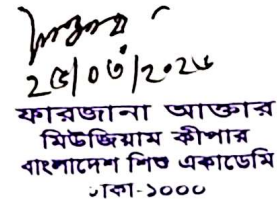 ২৫/০৩/২০২৫
ফারজানা আক্তার
মিউজিয়াম কীপার
বাংলাদেশ শিশু একাডেমি
ঢাকা-১০০০